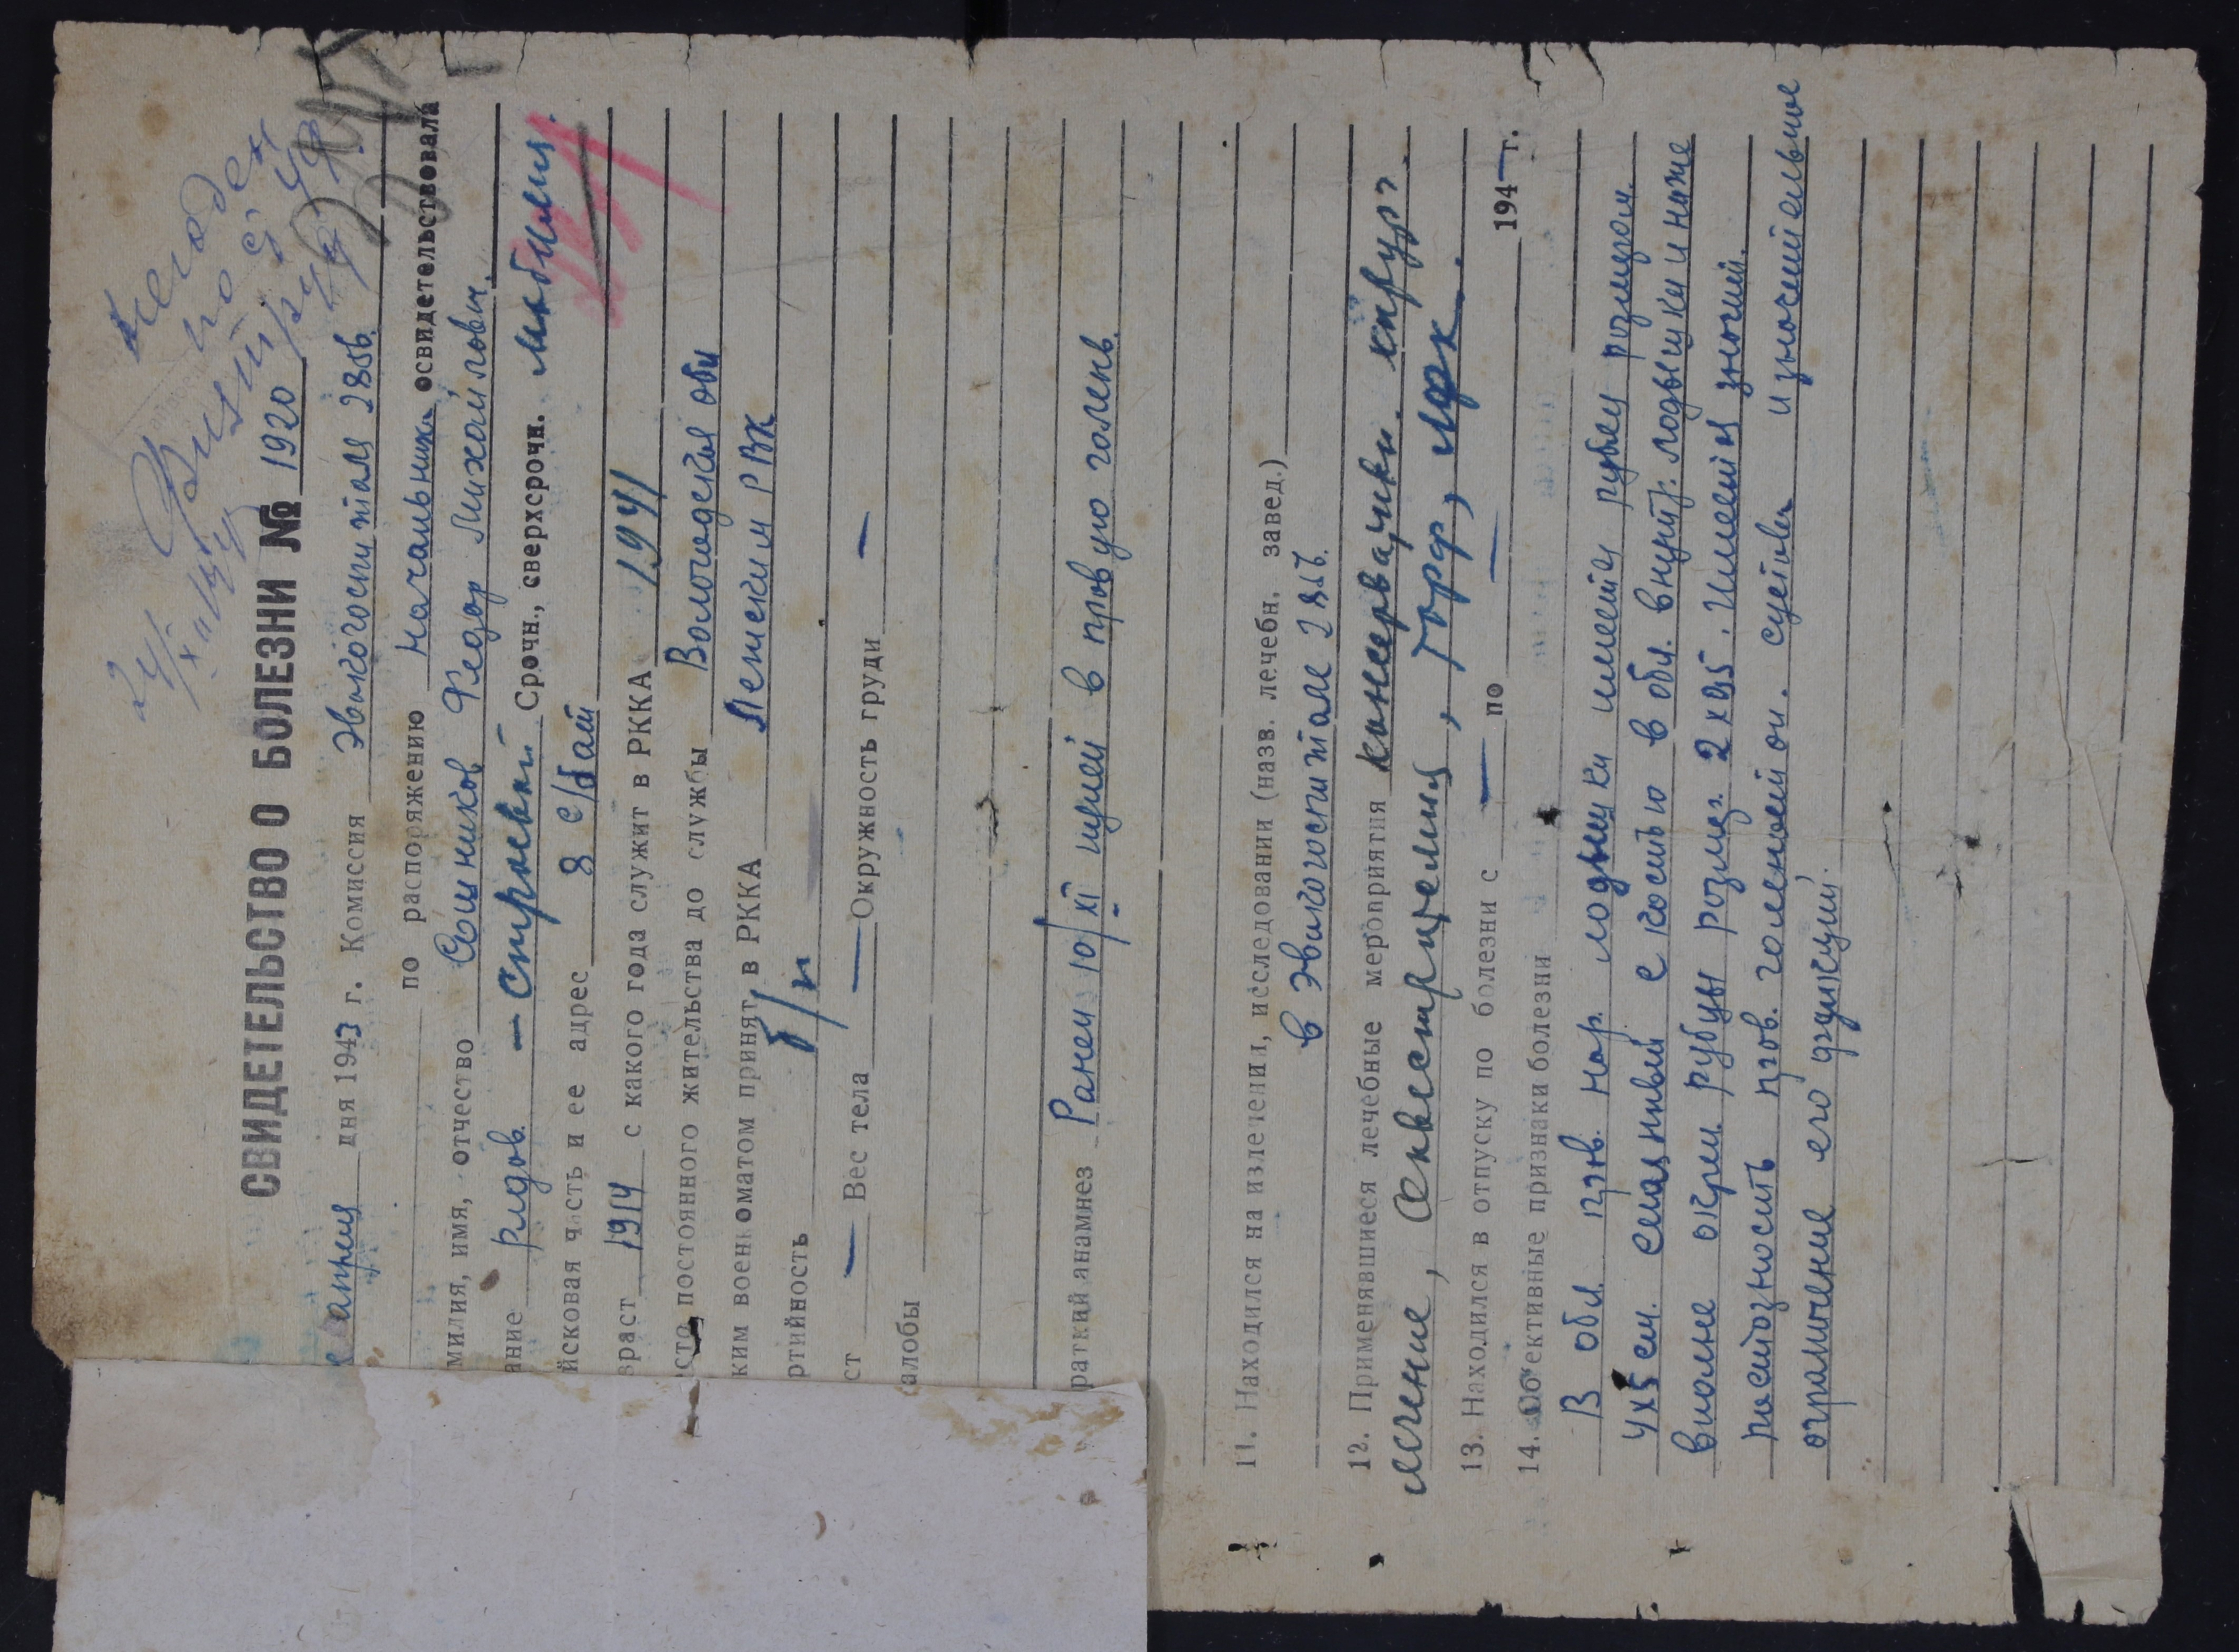 негоден
по ст.
24/X
СВИДЕТЕЛЬСТВО О БОЛЕЗНИ № 1920
апреля дня 1943 г. Комиссия Эвакогоспиталя
по распоряжению начальника освидетельствовала
милия, имя, отчество Сошников Федор Михайлович.
ание рядов. — строевой Срочн., сверхсрочн. мобилиз.
йсковая часть и ее адрес 8 с/бат
зраст 1914 с какого года служит в РККА 1941
сто постоянного жительства до службы Вологодская обл
ким военкоматом принят в РККА Ленским РВК
ртийность б/п
ст — Вес тела — Окружность груди —
алобы
раткий анамнез Ранен 10/XI пулей в правую голень.
11. Находился на излечении, исследовании (назв. лечебн. завед.)
в эвакогоспитале
12. Применявшиеся лечебные мероприятия консервативн. хирург.
лечение, секвестрация, торф, лфк.
13. Находился в отпуску по болезни с — по — 194 — г.
14. Об'ективные признаки болезни
В обл. прав. нар. лодыжки имеется рубец размером.
4х5 см. спаянный с костью в обл. внутр. лодыжки и ниже
вполне окреп. рубцы размер. 2х0,5. Имеется значит.
пастозность прав. голеностоп. сустава и значительное
ограничение его функции.